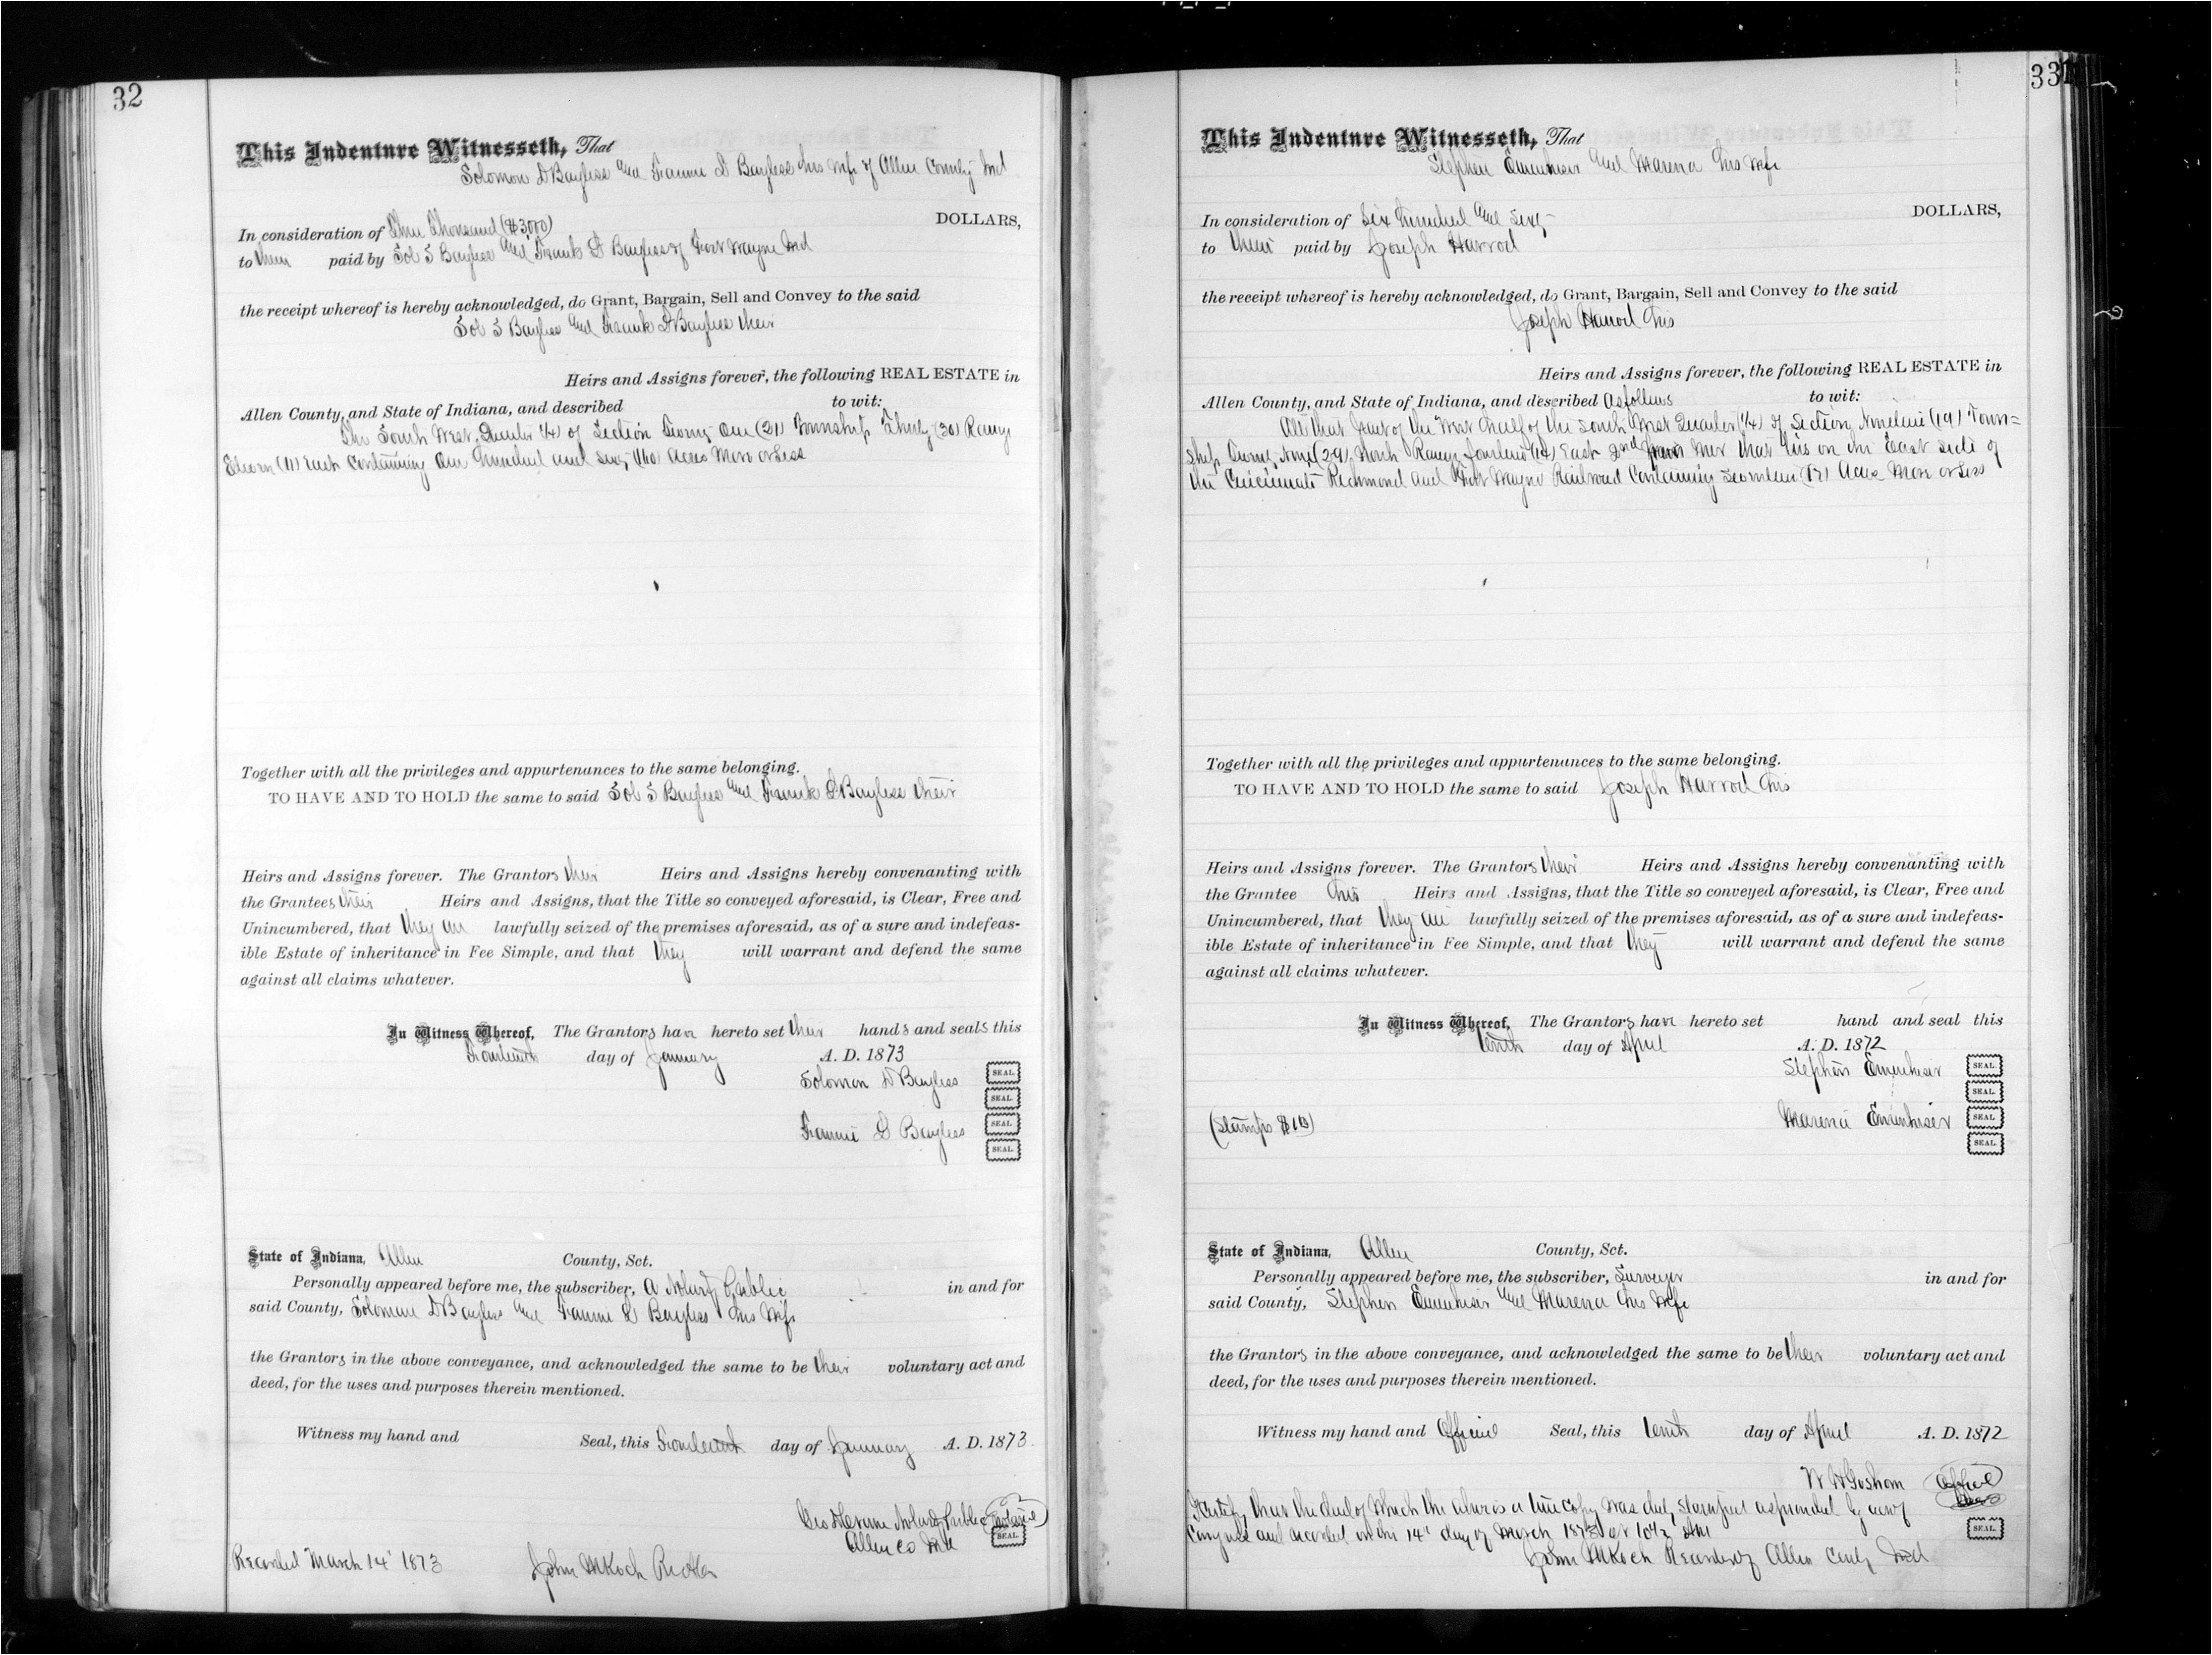 32
This Indenture Witnesseth, That
Solomon D Bayless and Fannie D Bayless his Wife of Allen County Ind
In consideration of Three Thousand ($3000) DOLLARS,
to them paid by Sol S Bayless and Frank D Bayless of Fort Wayne Ind
the receipt whereof is hereby acknowledged, do Grant, Bargain, Sell and Convey to the said
Sol S Bayless and Frank D Bayless their
Heirs and Assigns forever, the following REAL ESTATE in
Allen County, and State of Indiana, and described to wit:
The South West Quarter (1/4) of Section Twenty One (21) Township Thirty (30) Range
Eleven (11) East Containing One Hundred and Sixty (160) Acres More or Less
Together with all the privileges and appurtenances to the same belonging.
TO HAVE AND TO HOLD the same to said Sol S Bayless and Frank D Bayless their
Heirs and Assigns forever. The Grantors their Heirs and Assigns hereby convenanting with
the Grantees their Heirs and Assigns, that the Title so conveyed aforesaid, is Clear, Free and
Unincumbered, that they are lawfully seized of the premises aforesaid, as of a sure and indefeas-
ible Estate of inheritance in Fee Simple, and that they will warrant and defend the same
against all claims whatever.
In Witness Whereof, The Grantors have hereto set their hands and seals this
Fourteenth day of January A. D. 1873
Solomon D Bayless SEAL.
SEAL.
Fannie D Bayless SEAL.
SEAL.
State of Indiana, Allen County, Sct.
Personally appeared before me, the subscriber, A Notary Public in and for
said County, Solomon D Bayless and Fannie D Bayless his Wife
the Grantors in the above conveyance, and acknowledged the same to be their voluntary act and
deed, for the uses and purposes therein mentioned.
Witness my hand and Seal, this Fourteenth day of January A. D. 1873.
Notary Public
Allen Co Ind SEAL
Recorded March 14" 1873 John M Koch
33
This Indenture Witnesseth, That
Stephen Emenhiser and Marena his Wife
In consideration of Six Hundred and Sixty DOLLARS,
to them paid by Joseph Harrod
the receipt whereof is hereby acknowledged, do Grant, Bargain, Sell and Convey to the said
Joseph Harrod his
Heirs and Assigns forever, the following REAL ESTATE in
Allen County, and State of Indiana, and described As follows to wit:
All that part of the West half of the South West Quarter (1/4) of Section Nineteen (19) Town=
ship Twenty Nine (29) North Range fourteen (14) East 2nd Mer that lies on the East side of
the Cincinnati Richmond and Fort Wayne Railroad Containing Seventeen (17) Acres More or Less
Together with all the privileges and appurtenances to the same belonging.
TO HAVE AND TO HOLD the same to said Joseph Harrod his
Heirs and Assigns forever. The Grantors their Heirs and Assigns hereby convenanting with
the Grantee his Heirs and Assigns, that the Title so conveyed aforesaid, is Clear, Free and
Unincumbered, that they are lawfully seized of the premises aforesaid, as of a sure and indefeas-
ible Estate of inheritance in Fee Simple, and that they will warrant and defend the same
against all claims whatever.
In Witness Whereof, The Grantors have hereto set hand and seal this
tenth day of April A. D. 1872
Stephen Emenhiser SEAL.
SEAL.
(Stamps $1.00) Marena Emenhiser SEAL.
SEAL.
State of Indiana, Allen County, Sct.
Personally appeared before me, the subscriber, Surveyor in and for
said County, Stephen Emenhiser and Marena his Wife
the Grantors in the above conveyance, and acknowledged the same to be their voluntary act and
deed, for the uses and purposes therein mentioned.
Witness my hand and Official Seal, this tenth day of April A. D. 1872
W H Goshorn Official
I Certify that the deed of which the above is a true copy was duly stamped as provided by act of
Congress and recorded on the 14" day of March 1873 at 10 1/2 AM SEAL
John M Koch Recorder of Allen County Ind